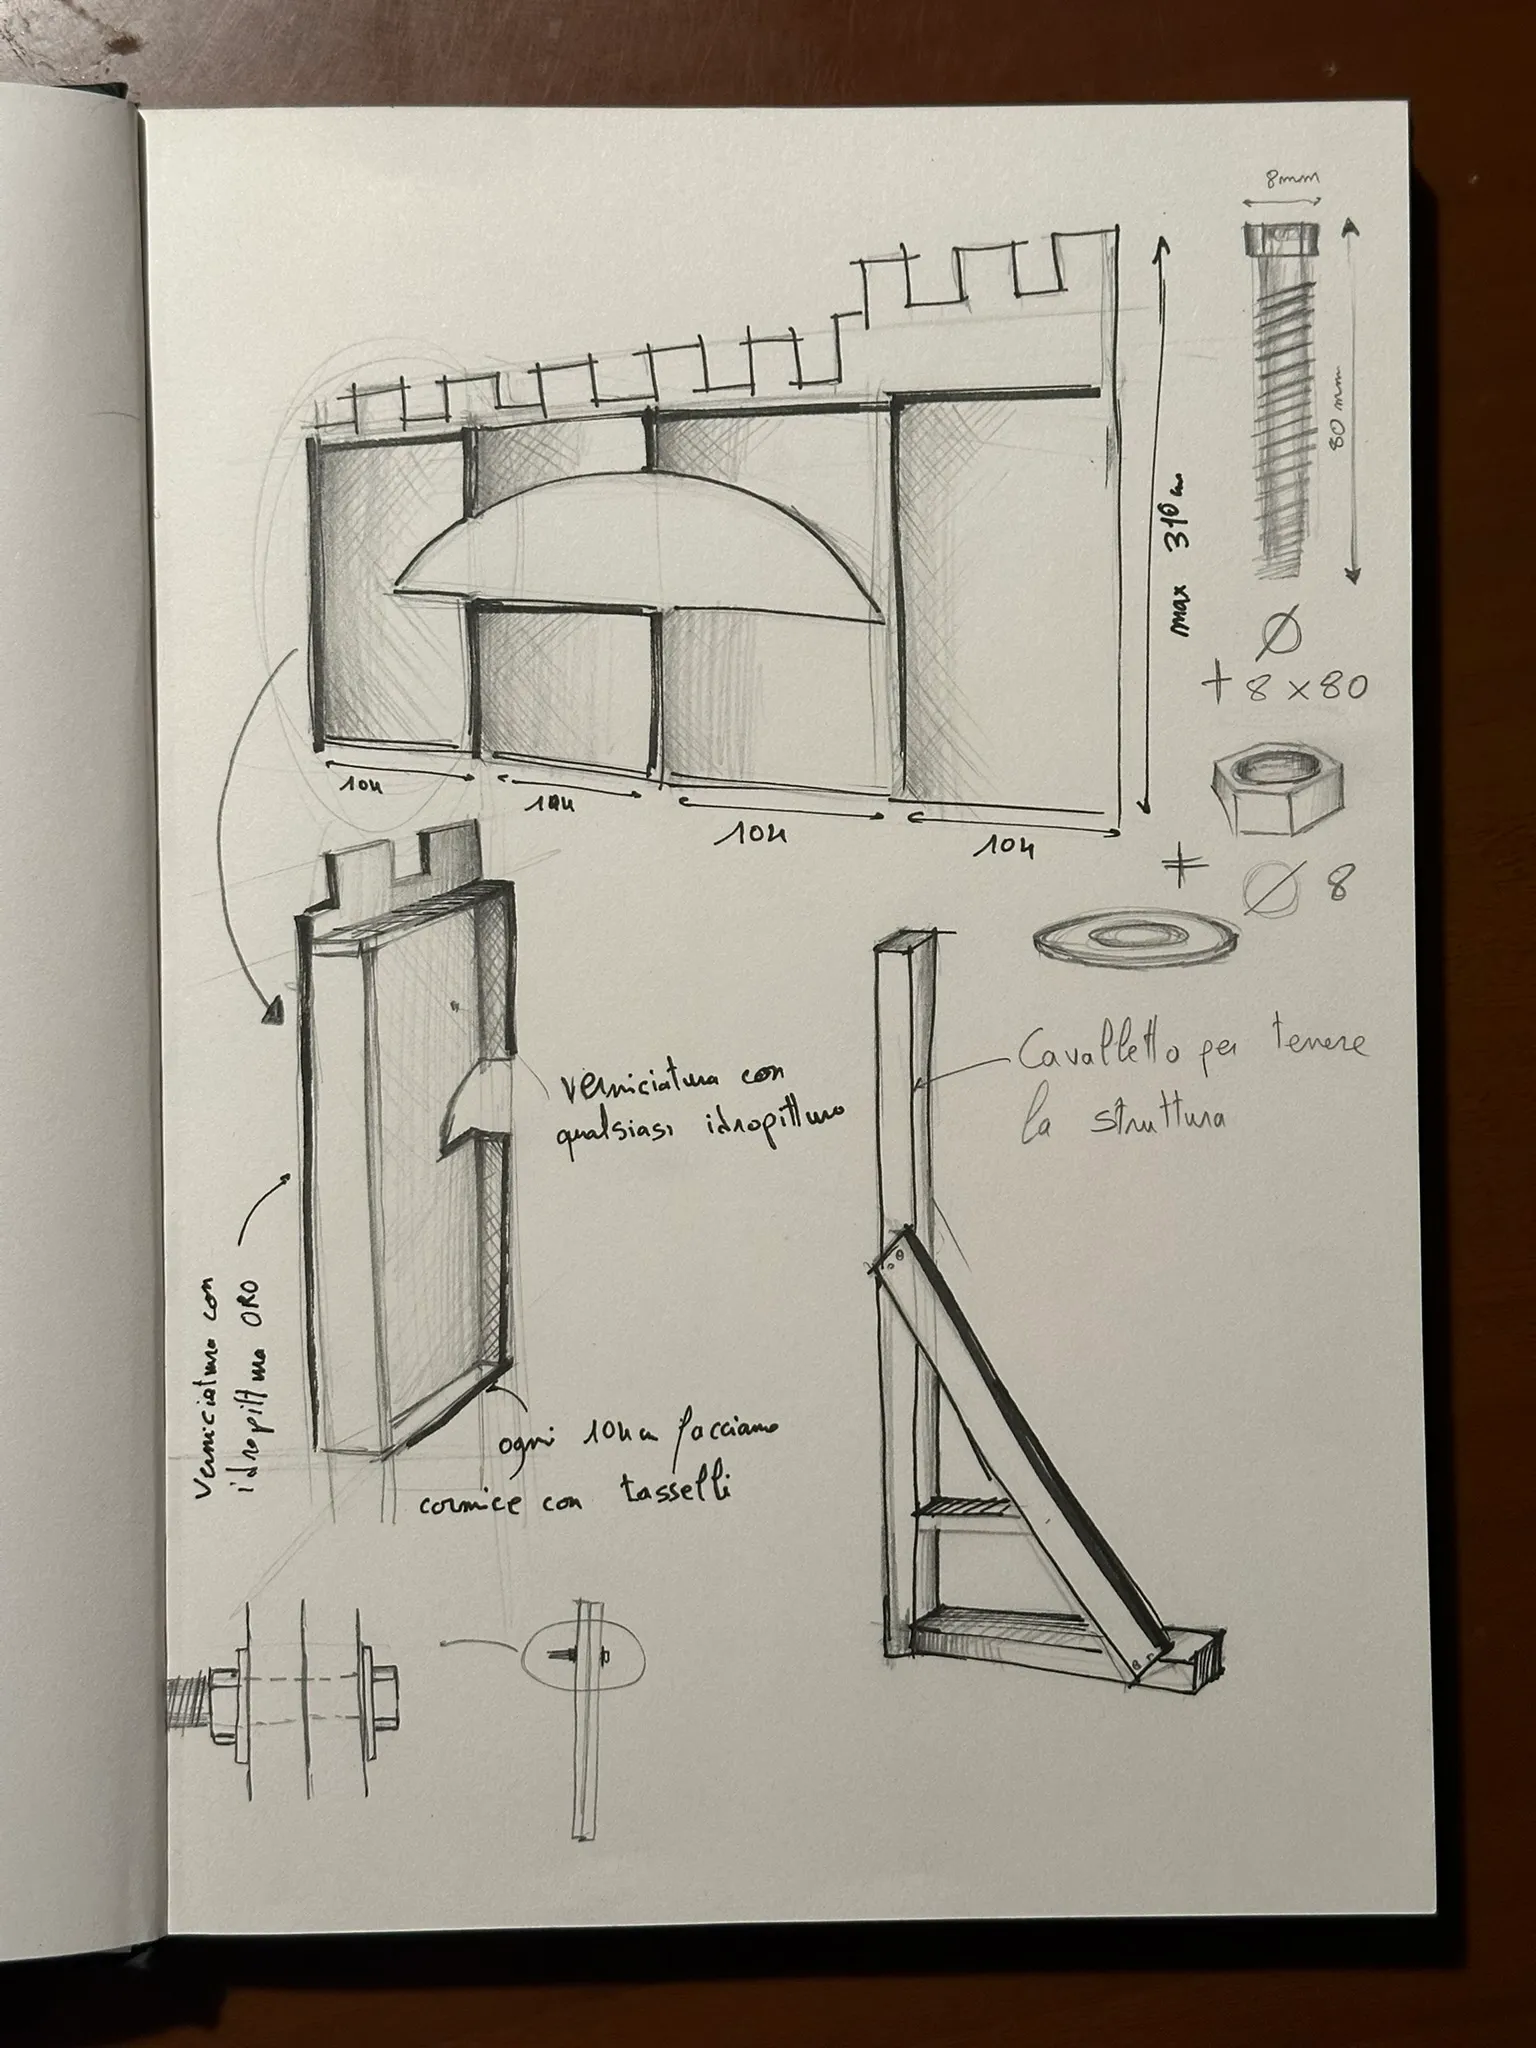 8mm
80 mm
max 310 cm
Ø
+ 8 x 80
104
104
104
104
+ Ø 8
Cavalletto per tenere
la struttura
Verniciatura con
qualsiasi idropittura
Verniciatura con
idropittura ORO
ogni 104 cm facciamo
cornice con tasselli